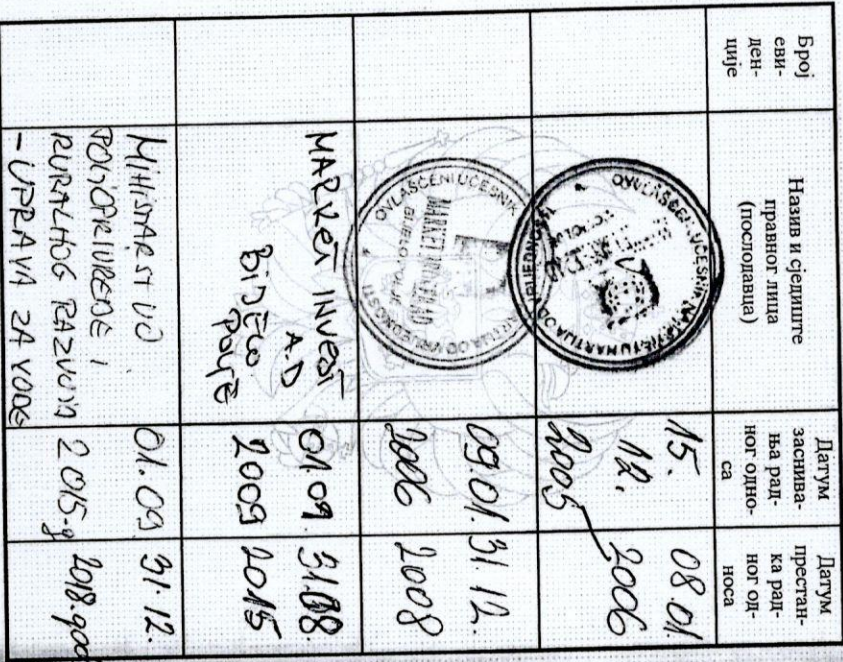 Број
еви-
ден-
ције
Назив и сједиште
правног лица
(послодавца)
Датум
заснива-
ња рад-
ног одно-
са
Датум
престан-
ка рад-
ног од-
носа
OVLAŠĆENI UČESNIK NA
HARTIJA OD
15.
12.
2005
08.01.
2006
OVLAŠĆENI UČESNIK
MARKET INVEST AD
BIJELO POLJE
HARTIJA OD VRIJEDNOSTI
09.01.
2006
31.12.
2008
MARKET INVEST
A.D
BIJELO
POLJE
01.09.
2009
31.08.
2015
MINISTARSTVO
POLJOPRIVREDE I
RURALNOG RAZVOJA
- UPRAVA ZA VODE
01.09.
2015.g
31.12.
2018.god